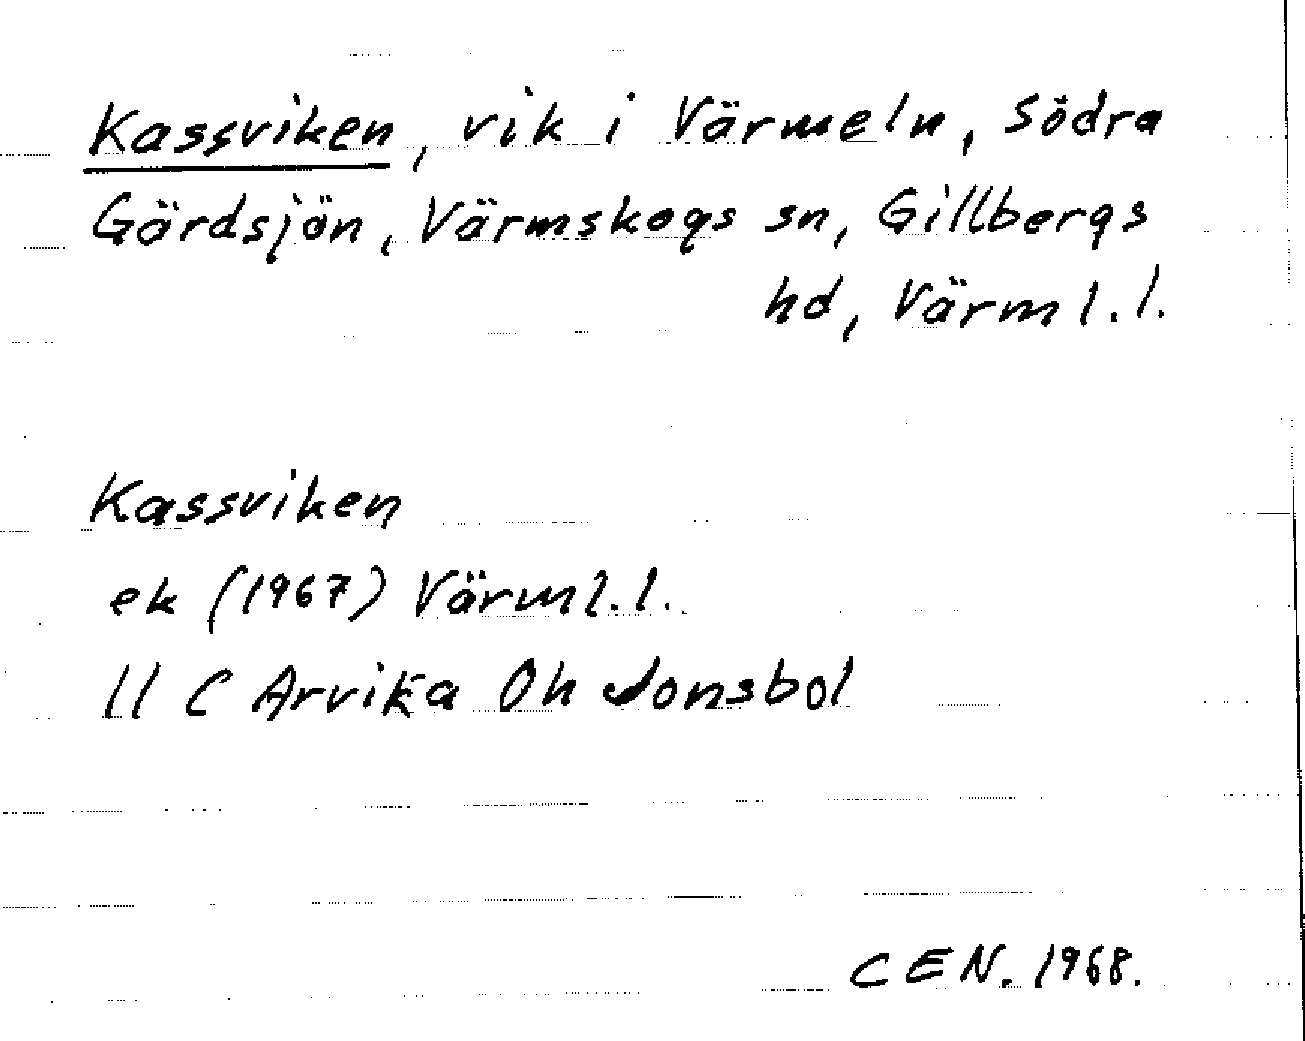 Kassviken, vik i Värmeln, Södra
Gärdsjön, Värmskogs sn, Gillbergs
hd, Värml.l.
Kassviken
ek (1967) Värml.l.
11 C Arvika Oh Jonsbol
CEN. 1968.